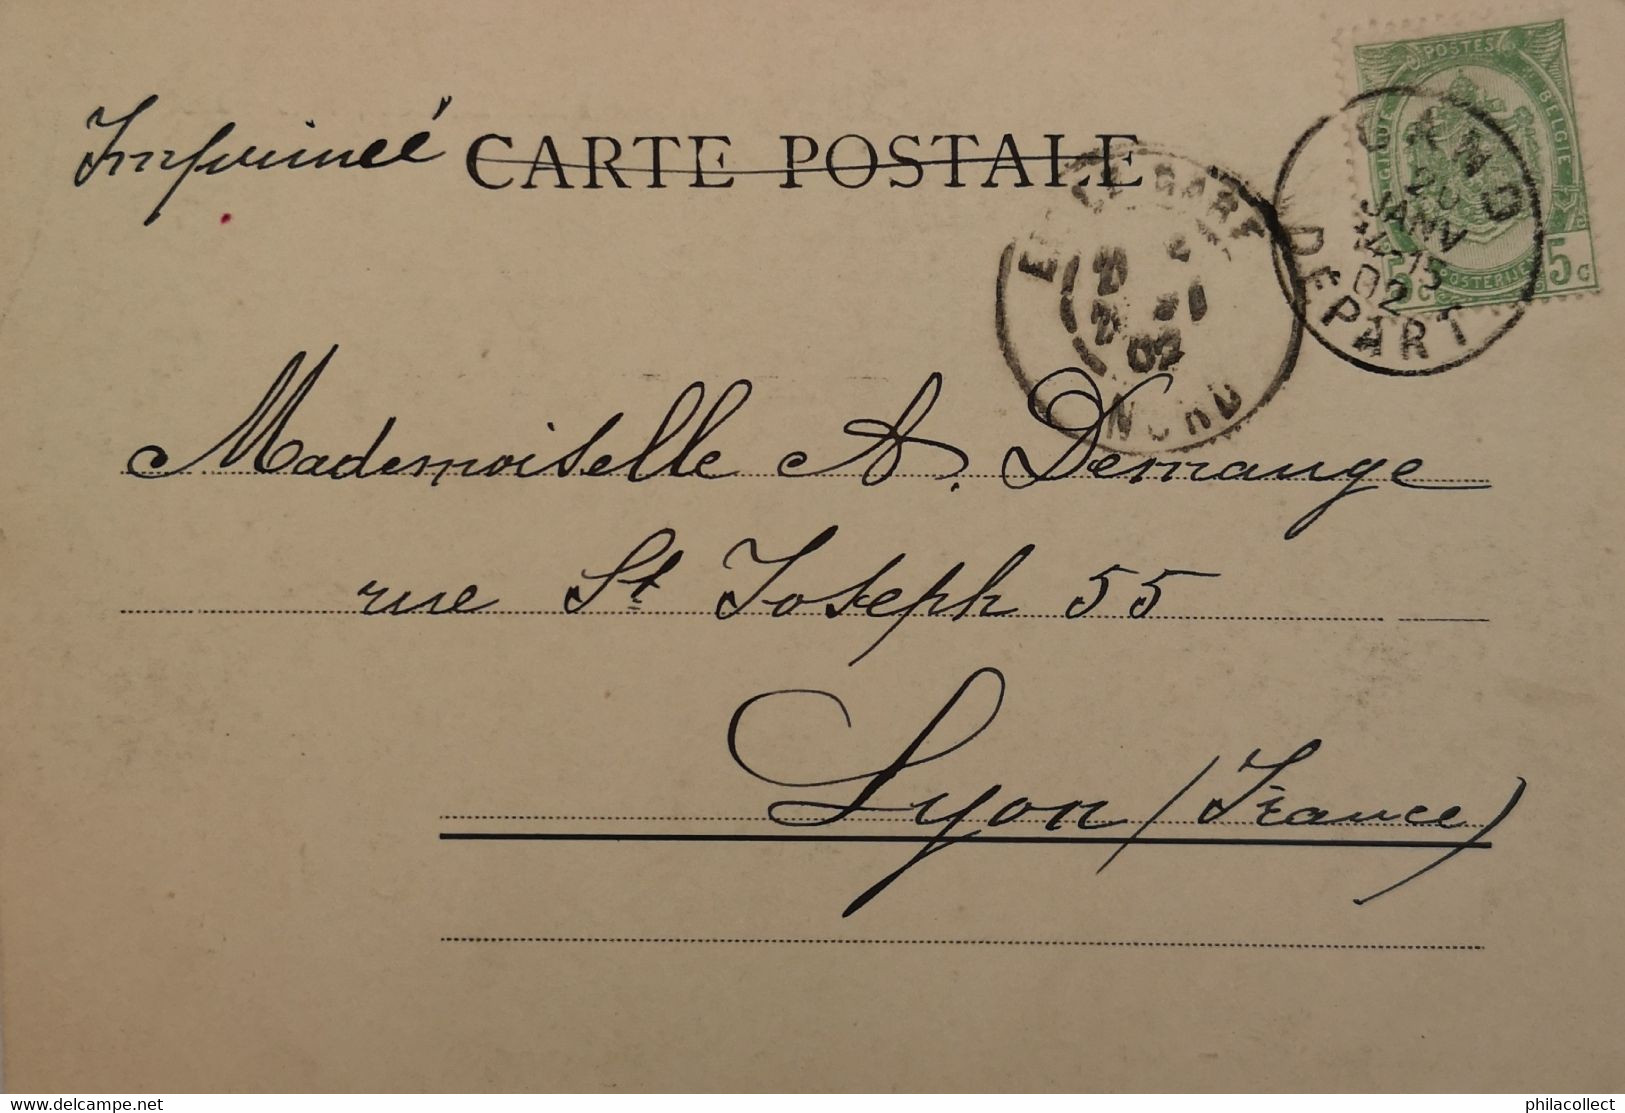 Imprimeé CARTE POSTALE
POSTES
BELGIQUE BELGIE
POSTERIJEN
5c 5c
GAND
JANV
4-15
02
DEPART
GARE
02
NORD
Mademoiselle A. Demange
rue St Joseph 55
Lyon (France)
https://www.delcampe.net
philacollect